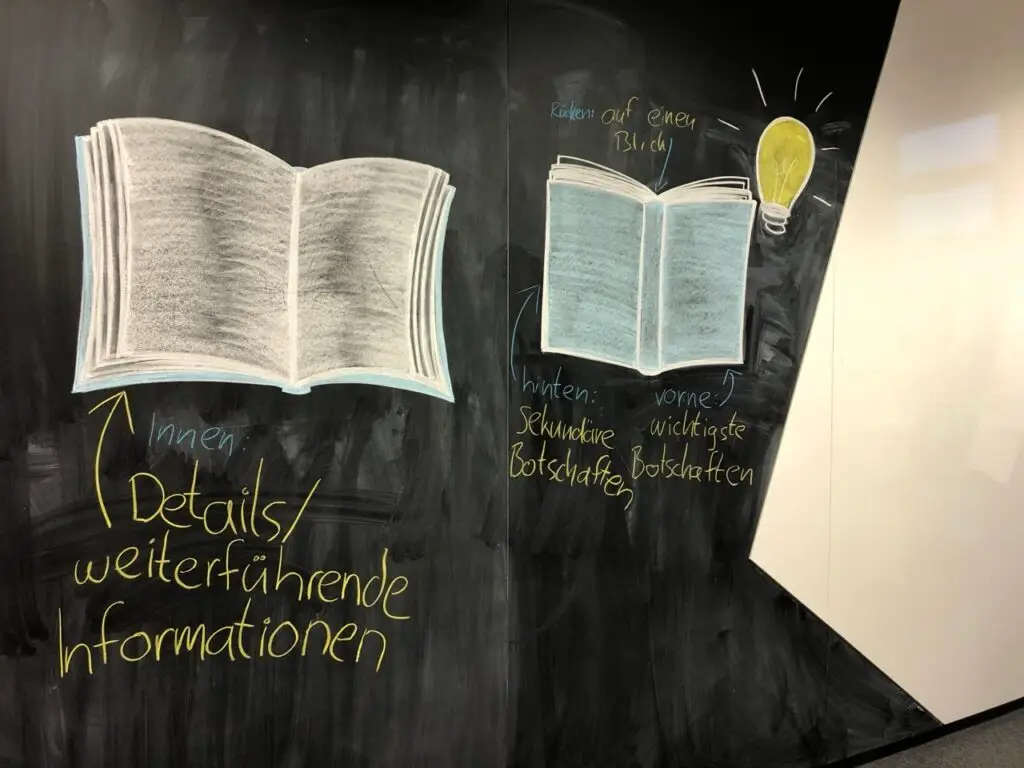 Innen:
Details/
weiterführende
Informationen
Rücken: auf einen
Blick
hinten:
Sekundäre
Botschaften
vorne:
wichtigste
Botschaften